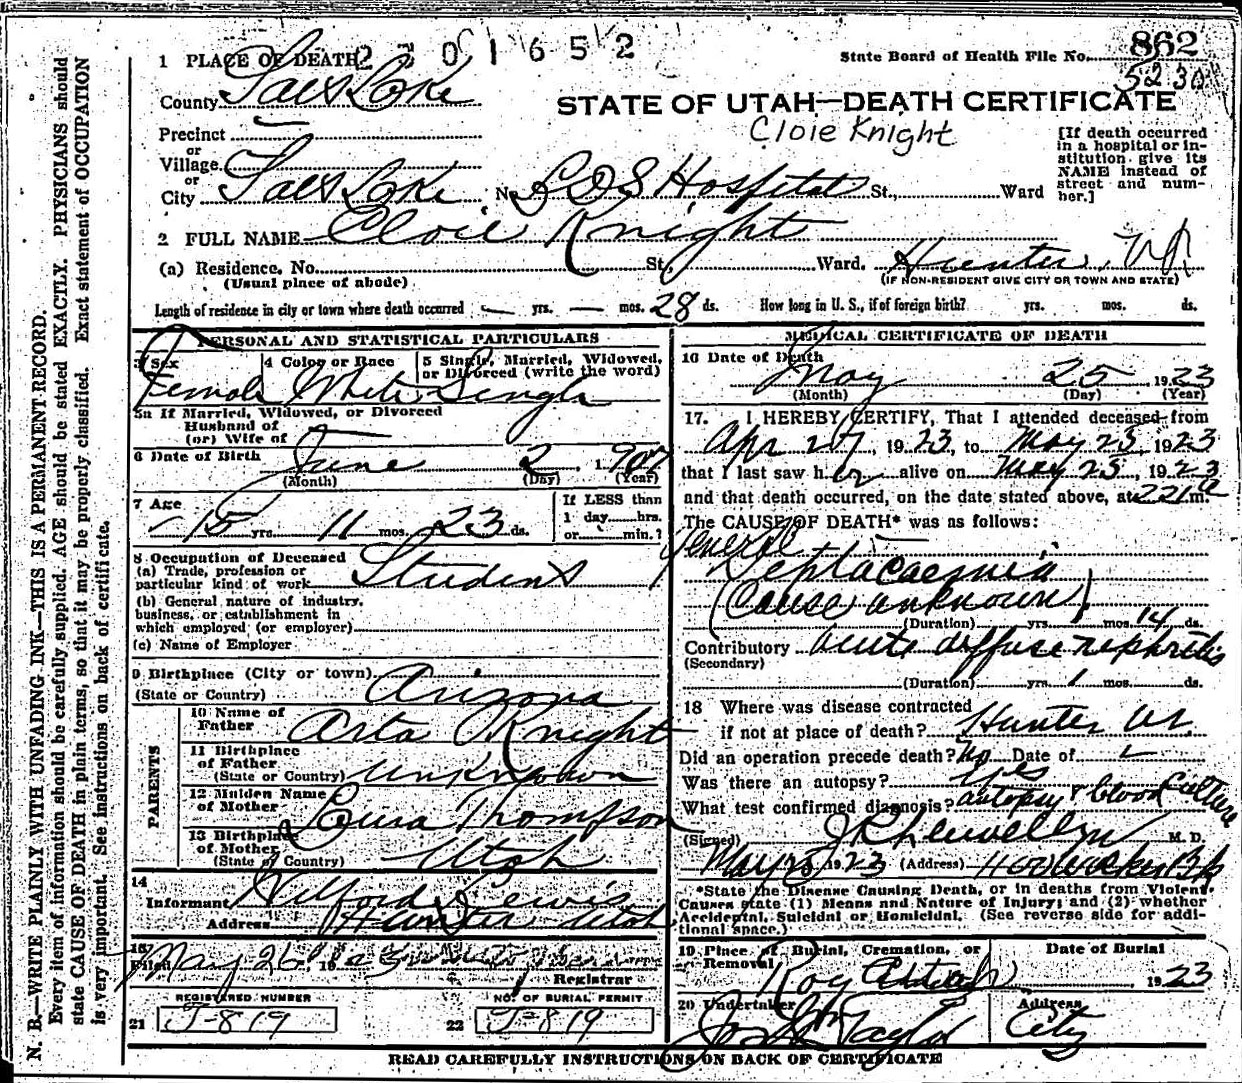 N. B.—WRITE PLAINLY WITH UNFADING INK—THIS IS A PERMANENT RECORD.
Every item of information should be carefully supplied. AGE should be stated EXACTLY. PHYSICIANS should
state CAUSE OF DEATH in plain terms, so that it may be properly classified. Exact statement of OCCUPATION
is very important. See instructions on back of certificate.
1 PLACE OF DEATH 2301652
State Board of Health File No. 862
5230
County Salt Lake
STATE OF UTAH—DEATH CERTIFICATE
Cloie Knight
Precinct
or
Village
or
City Salt Lake No. LDS Hospital St., Ward
[If death occurred
in a hospital or in-
stitution give its
NAME instead of
street and num-
ber.]
2 FULL NAME Cloie Knight
(a) Residence. No. St., Ward. Hunter, Ut
(Usual place of abode)
(IF NON-RESIDENT GIVE CITY OR TOWN AND STATE)
Length of residence in city or town where death occurred — yrs. — mos. 28 ds. How long in U. S., if of foreign birth? yrs. mos. ds.
PERSONAL AND STATISTICAL PARTICULARS
3 Sex
Female
4 Color or Race
White
5 Single, Married, Widowed,
or Divorced (write the word)
Single
5a If Married, Widowed, or Divorced
Husband of
(or) Wife of
6 Date of Birth
June 2, 1907
(Month) (Day) (Year)
7 Age
15 yrs. 11 mos. 23 ds.
If LESS than
1 day hrs.
or min.?
8 Occupation of Deceased
(a) Trade, profession or
particular kind of work Student
(b) General nature of industry,
business, or establishment in
which employed (or employer)
(c) Name of Employer
9 Birthplace (City or town)
(State or Country) Arizona
PARENTS
10 Name of
Father Arta Knight
11 Birthplace
of Father
(State or Country) Unknown
12 Maiden Name
of Mother Laura Thompson
13 Birthplace
of Mother
(State or Country) Utah
14
Informant Wilford Lewis
Address Hunter Utah
15
Filed May 26 1923
Registrar
REGISTERED NUMBER
21 J-819
NO. OF BURIAL PERMIT
22 J-819
MEDICAL CERTIFICATE OF DEATH
16 Date of Death
May 25 1923
(Month) (Day) (Year)
17. I HEREBY CERTIFY, That I attended deceased from
Apr 27, 1923, to May 25, 1923
that I last saw her alive on May 25, 1923
and that death occurred, on the date stated above, at 221 a m.
The CAUSE OF DEATH* was as follows:
General
Septacaemia
(Cause unknown)
(Duration) yrs. mos. 14 ds.
Contributory acute diffuse nephritis
(Secondary)
(Duration) yrs. 1 mos. ds.
18 Where was disease contracted
if not at place of death? Hunter Ut.
Did an operation precede death? No Date of —
Was there an autopsy? Yes
What test confirmed diagnosis? autopsy & blood culture
(Signed) J R Llewellyn M. D.
May 25 1923 (Address)
*State the Disease Causing Death, or in deaths from Violent
Causes state (1) Means and Nature of Injury; and (2) whether
Accidental, Suicidal or Homicidal. (See reverse side for addi-
tional space.)
19 Place of Burial, Cremation, or
Removal
Roy Utah
Date of Burial
1923
20 Undertaker
Jos Wm Taylor
Address
City
READ CAREFULLY INSTRUCTIONS ON BACK OF CERTIFICATE